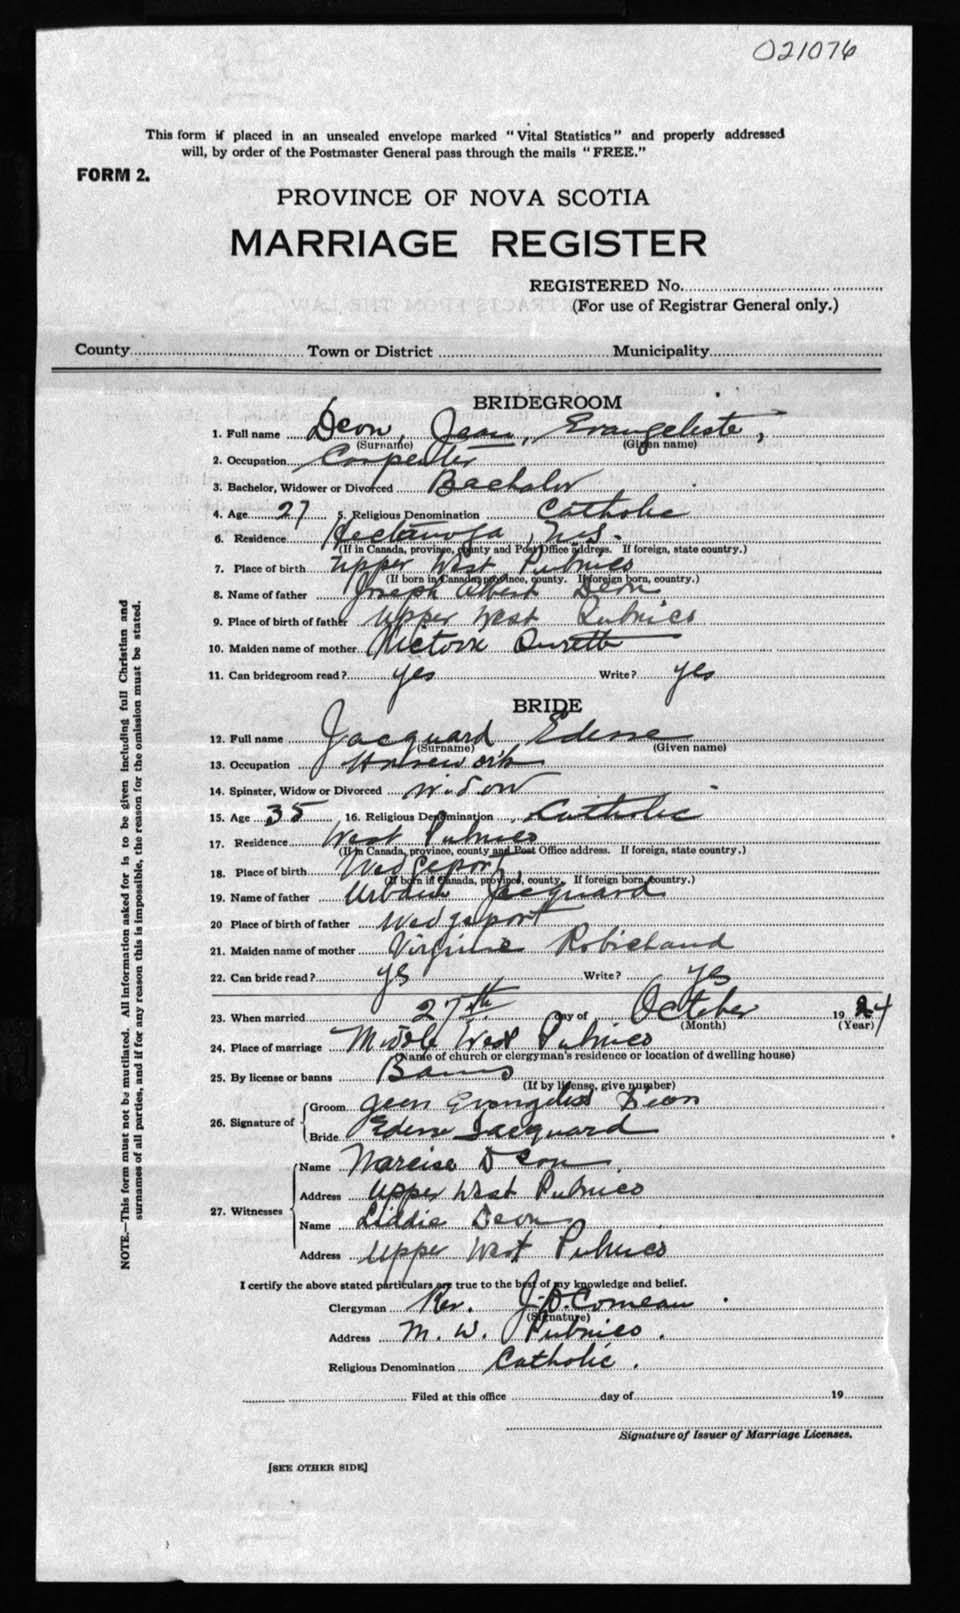 021076
This form if placed in an unsealed envelope marked "Vital Statistics" and properly addressed
will, by order of the Postmaster General pass through the mails "FREE."
FORM 2.
PROVINCE OF NOVA SCOTIA
MARRIAGE REGISTER
REGISTERED No.
(For use of Registrar General only.)
County Town or District Municipality
BRIDEGROOM
1. Full name Deon, Jean, Evangeliste,
(Surname) (Given name)
2. Occupation Carpenter
3. Bachelor, Widower or Divorced Bachelor
4. Age 27 5. Religious Denomination Catholic
6. Residence Hectanooga, N.S.
(If in Canada, province, county and Post Office address. If foreign, state country.)
7. Place of birth Upper West Pubnico
(If born in Canada, province, county. If foreign born, country.)
8. Name of father Joseph Albert Deon
9. Place of birth of father Upper West Pubnico
10. Maiden name of mother Victorie Surette
11. Can bridegroom read? yes Write? yes
BRIDE
12. Full name Jacquard, Edesse
(Surname) (Given name)
13. Occupation Housework
14. Spinster, Widow or Divorced Widow
15. Age 35 16. Religious Denomination Catholic
17. Residence West Pubnico
(If in Canada, province, county and Post Office address. If foreign, state country.)
18. Place of birth Wedgeport
(If born in Canada, province, county. If foreign born, country.)
19. Name of father Urbain Jacquard
20 Place of birth of father Wedgeport
21. Maiden name of mother Virginie Robichaud
22. Can bride read? yes Write? yes
23. When married 27th day of October 1924
(Month) (Year)
24. Place of marriage Middle West Pubnico
(Name of church or clergyman's residence or location of dwelling house)
25. By license or banns Banns
(If by license, give number)
26. Signature of Groom Jean Evangelist Deon
Bride Edesse Jacquard
27. Witnesses Name Narcise Deon
Address Upper West Pubnico
Name Liddie Deon
Address Upper West Pubnico
I certify the above stated particulars are true to the best of my knowledge and belief.
Clergyman Rev. J. D. Comeau
(Signature)
Address M. W. Pubnico.
Religious Denomination Catholic.
Filed at this office day of 19
Signature of Issuer of Marriage Licenses.
[SEE OTHER SIDE]
NOTE.—This form must not be mutilated. All information asked for is to be given including full Christian and
surnames of all parties, and if for any reason this is impossible, the reason for the omission must be stated.